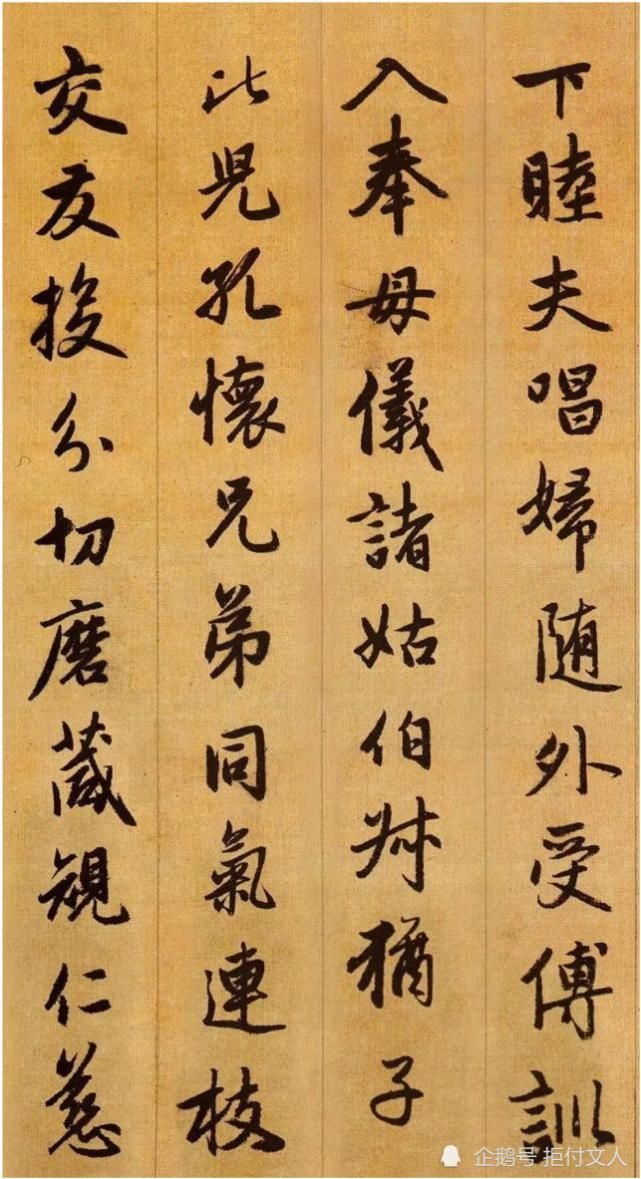 下睦夫唱婦随外受傅訓
入奉母儀諸姑伯叔猶子
比兒孔懷兄弟同氣連枝
交友投分切磨箴規仁慈
企鹅号 拒付文人